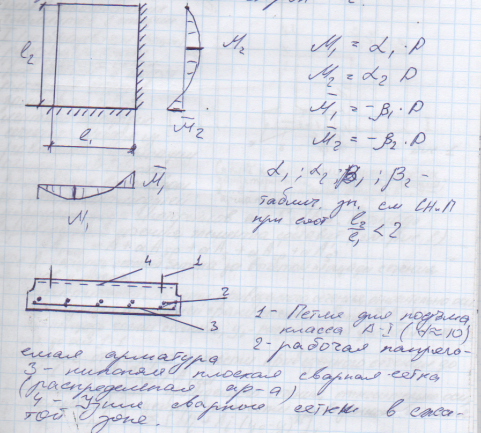 l₂
M₂
M̄₂
l₁
M̄₁
M₁
M₁ = α₁ · P
M₂ = α₂ P
M̄₁ = -β₁ · P
M̄₂ = -β₂ · P
α₁ ; α₂ ; β₁ ; β₂ -
таблич. зн. см СНиП
при соот l₂/l₁ < 2
4
1
2
3
1 - Петля для подъёма
класса А-I (
2 - рабочая напряга-
емая арматура
3 - нижняя плоская сварная сетка
(распределеная ар-а)
4 - сварные сетки в сжа-
той зоне.